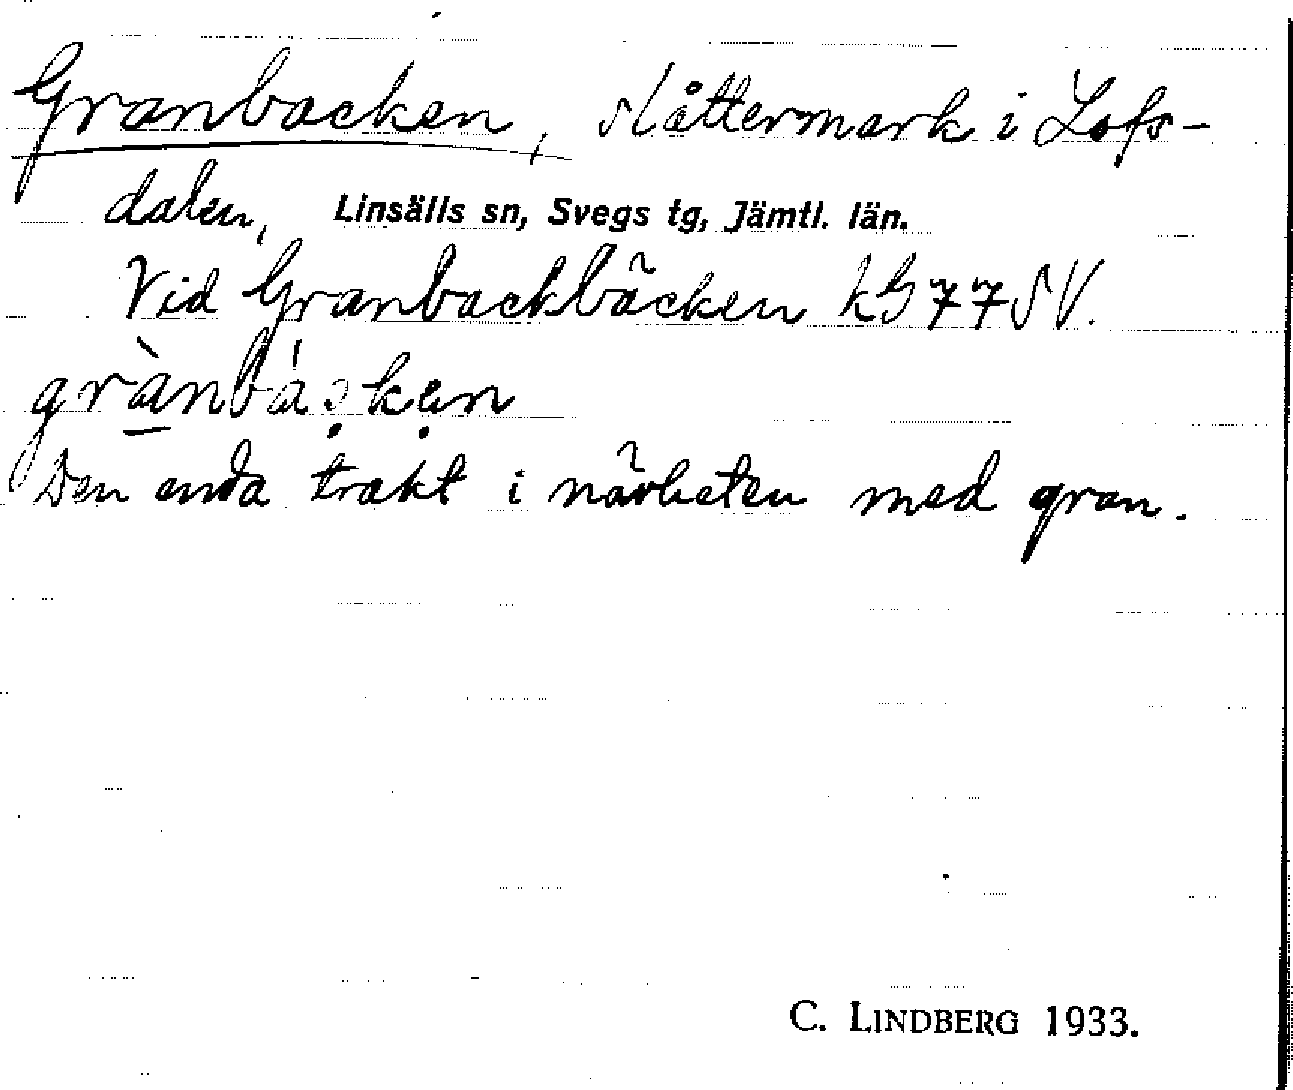 Granbacken, slåttermark i Lofs-
dalen, Linsälls sn, Svegs tg, Jämtl. län.
Vid Granbackbäcken kG 77 SV.
Den enda trakt i närheten med gran.
C. LINDBERG 1933.